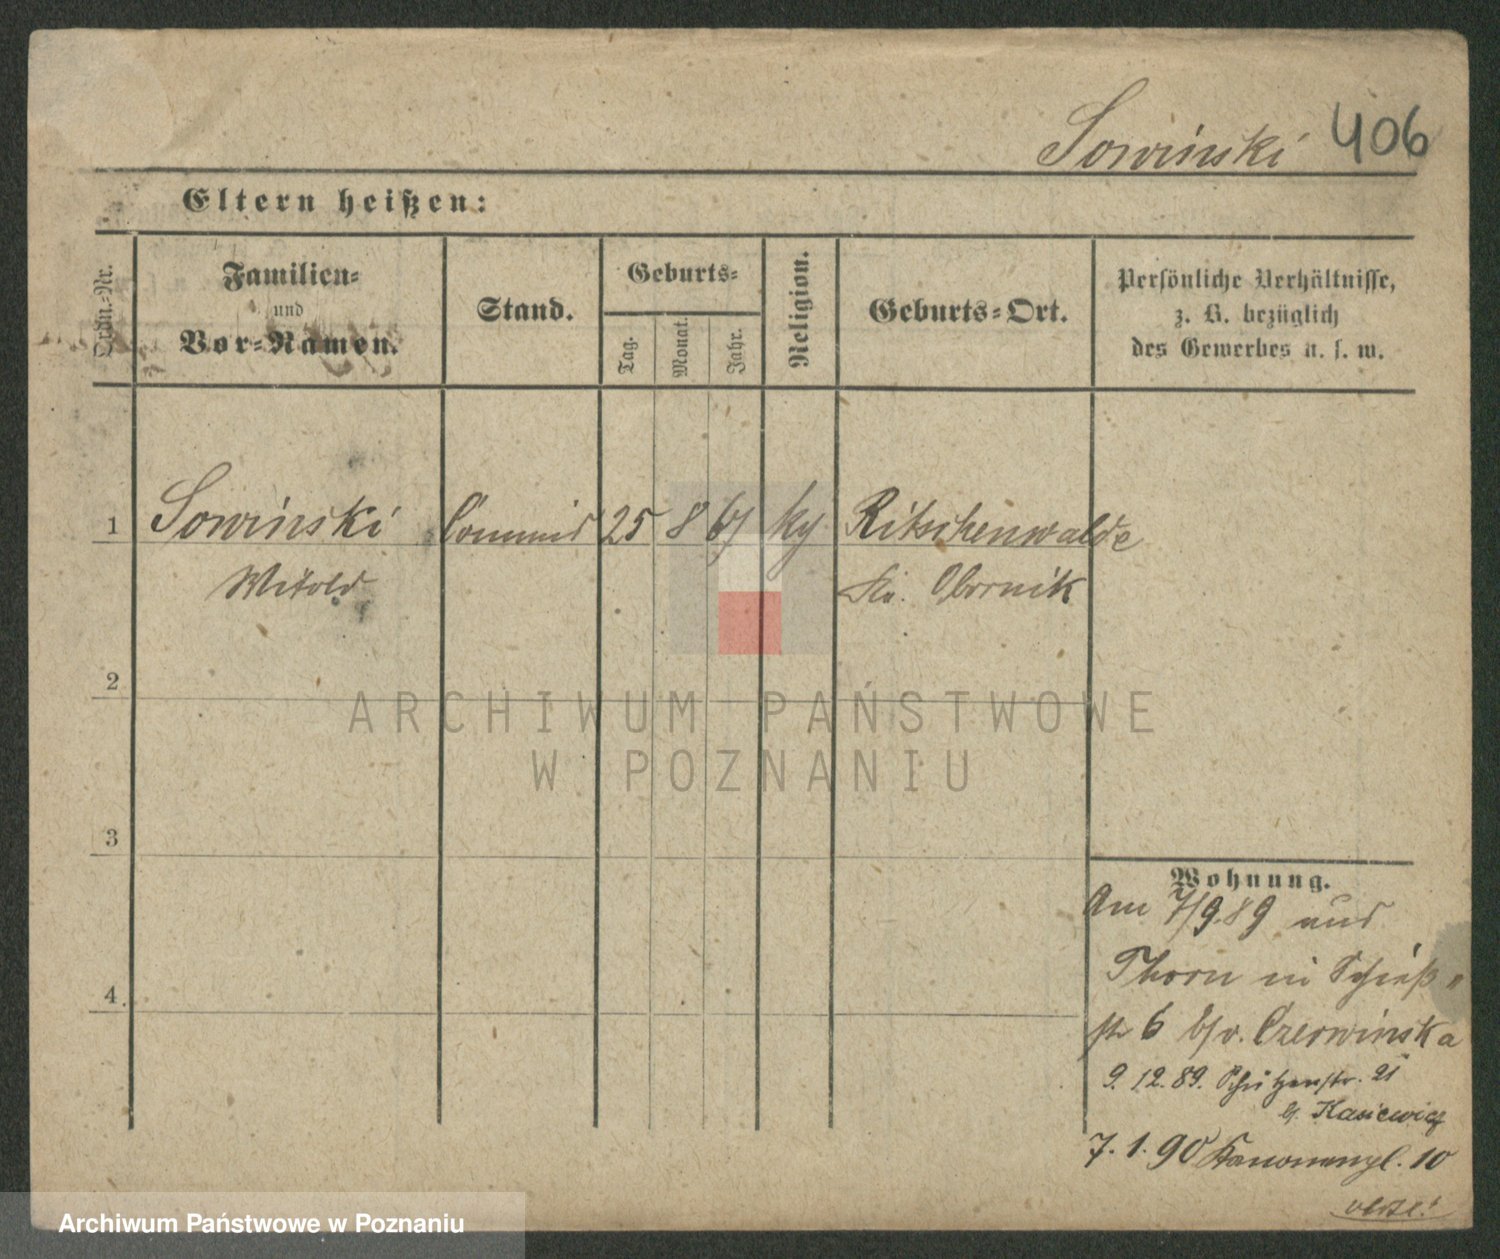 Sowinski 406
Eltern heißen:
Ordn.-Nr.
Familien-
und
Vor-Namen.
Stand.
Geburts-
Tag.
Monat.
Jahr.
Religion.
Geburts-Ort.
Persönliche Verhältnisse,
z. B. bezüglich
des Gewerbes u. s. w.
1 Sowinski Commis 25 8 67 kg Ritschenwalde
Witold Kr. Obornik
2
3
4.
ARCHIWUM PAŃSTWOWE
W POZNANIU
Wohnung.
Am 7/9.89 aus
Thorn in Schieß-
str 6 b/v. Czerwinska
9.12.89. Schützenstr. 21
b. Kasiewicz
7.1.90 Kanonenpl. 10
Archiwum Państwowe w Poznaniu